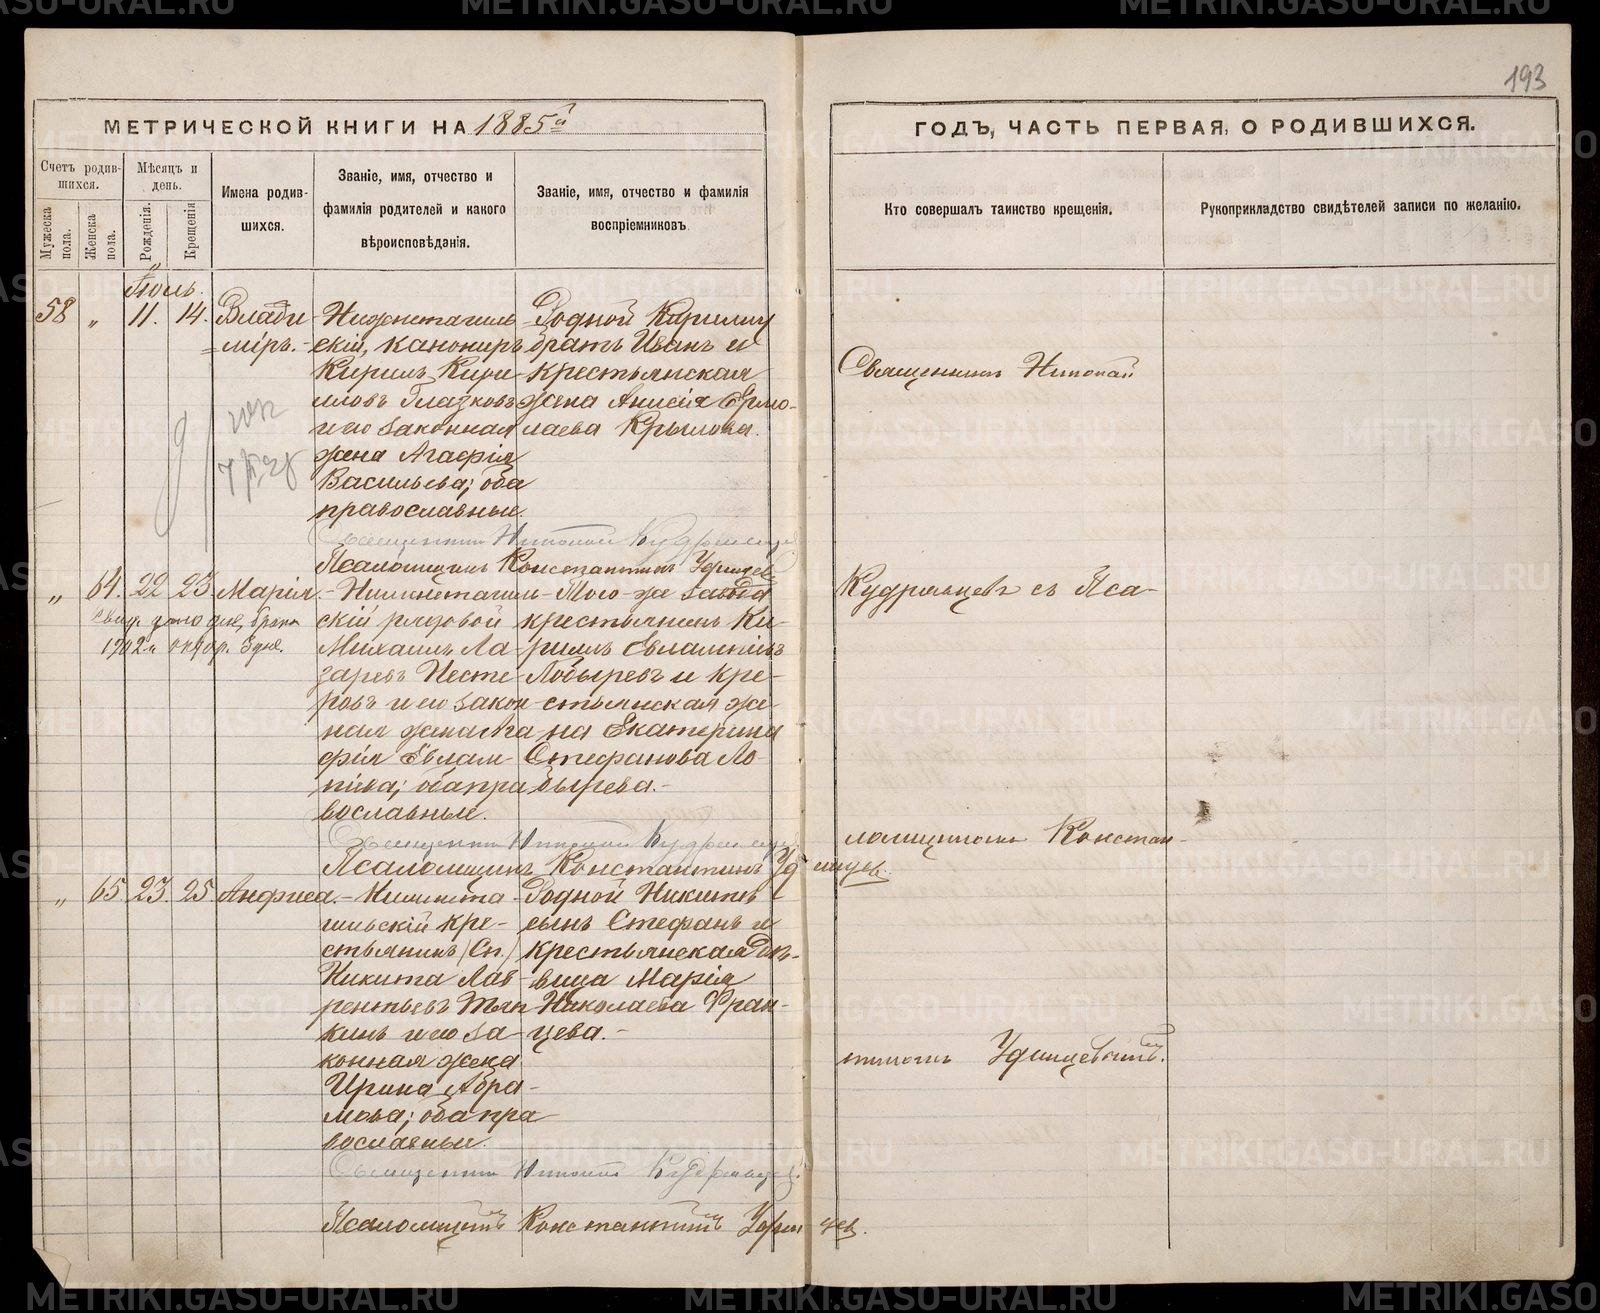 193
МЕТРИЧЕСКОЙ КНИГИ НА 1885й
ГОДЪ, ЧАСТЬ ПЕРВАЯ, О РОДИВШИХСЯ.
Счетъ родив-
шихся.
Мужеска пола.
Женска пола.
Мѣсяцъ и день.
Рожденія.
Крещенія
Имена родив-
шихся.
Званіе, имя, отчество и
фамилія родителей и какого
вѣроисповѣданія.
Званіе, имя, отчество и фамилія
воспріемниковъ
Кто совершалъ таинство крещенія.
Рукоприкладство свидѣтелей записи по желанію.
Іюль.
58 „ 11. 14. Влади-
міръ.
Нижнетагиль-
скій, канониръ
Кирилъ Кири-
лловъ Глазковъ
и его законная
жена Агафія
Васильева; оба
православные.
Родной Кириллу
братъ Иванъ и
крестьянская
жена Анисія Ермо-
лаева Крылова.
Священникъ Николай Кудрявцевъ
Псаломщикъ Константинъ Удинцев
„ 64. 22 23. Марія.
1902 г. октяр. 3 дня.
Нижнетагиль-
скій рядовой
Михаилъ Ла-
заревъ Несте-
ровъ и его закон-
ная жена Ага-
фія Евлам-
піева; оба пра-
вославные.
Того-же завода
крестьянинъ Ки-
риллъ Евлампіевъ
Лобыревъ и кре-
стьянская же-
на Екатерина
Стефанова Ло-
бырева.
Священникъ Николай Кудрявцев
Псаломщикъ Константинъ Удинцев.
„ 65. 23. 25 Анфиса.
Нижнета-
гильскій кре-
стьянинъ (Сп.)
Никита Лав-
рентьевъ Тяп-
кинъ и его за-
конная жена
Ирина Абра-
мова; оба пра-
вославные.
Родной Никитѣ
сынъ Стефанъ и
крестьянская дѣ-
вица Марія
Николаева Фран-
цева.
Священникъ Николай Кудрявцев.
Псаломщикъ Константинъ Удинцев.
Священникъ Николай
Кудрявцевъ съ Пса-
ломщикомъ Констан-
тиномъ Удинцевымъ.
METRIKI.GASO-URAL.RU